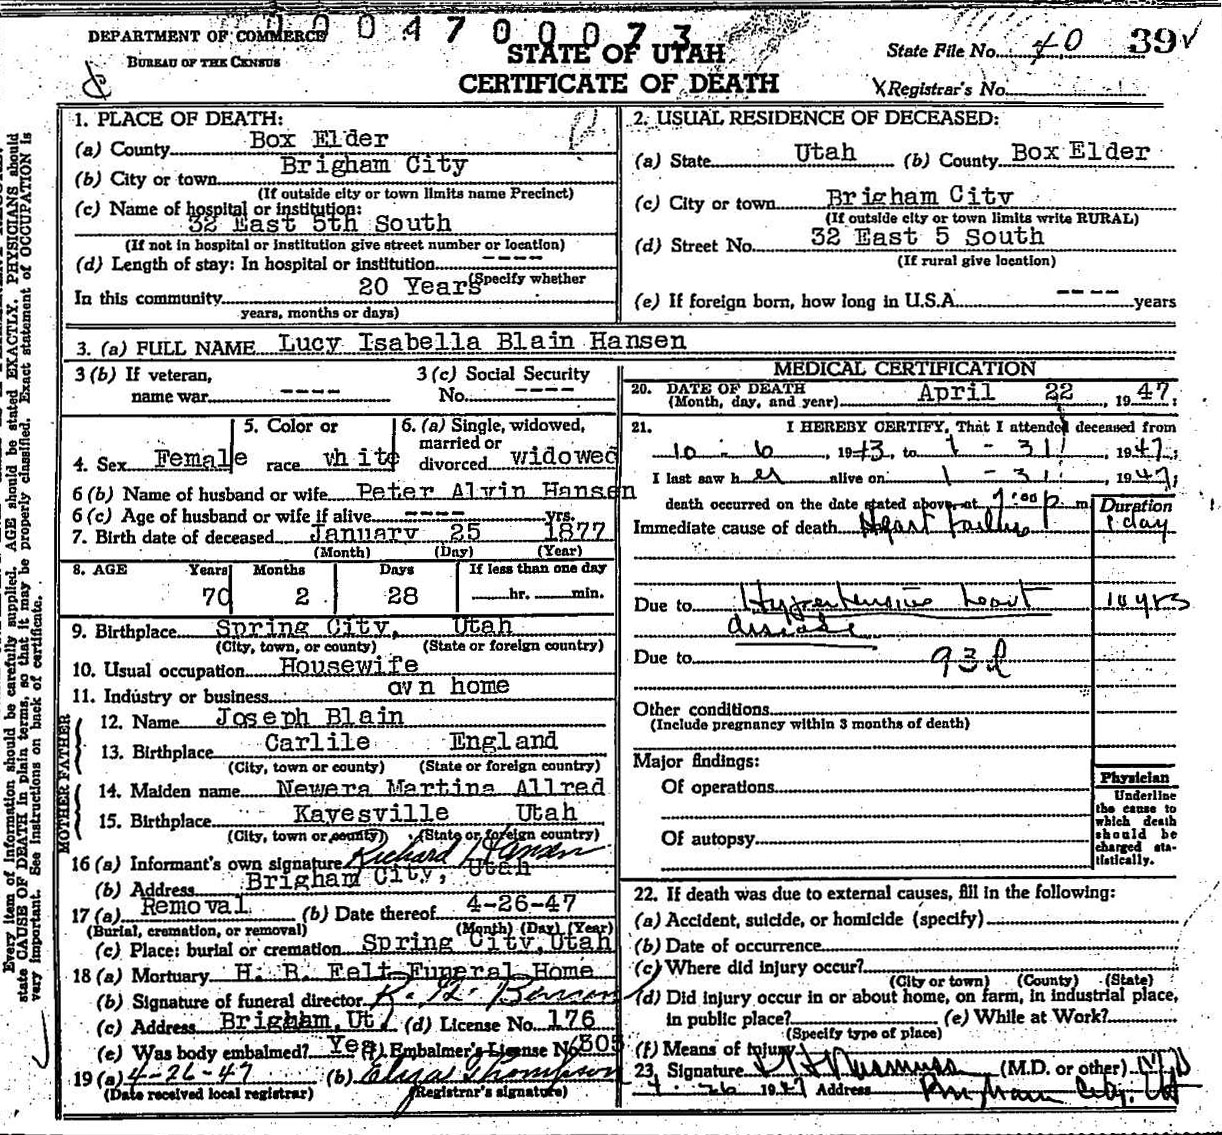 0004700073
DEPARTMENT OF COMMERCE
BUREAU OF THE CENSUS
STATE OF UTAH
CERTIFICATE OF DEATH
State File No. 40 39
Registrar's No.
1. PLACE OF DEATH:
(a) County Box Elder
(b) City or town Brigham City
(If outside city or town limits name Precinct)
(c) Name of hospital or institution:
32 East 5th South
(If not in hospital or institution give street number or location)
(d) Length of stay: In hospital or institution ----
(Specify whether
In this community 20 Years
years, months or days)
2. USUAL RESIDENCE OF DECEASED:
(a) State Utah (b) County Box Elder
(c) City or town Brigham City
(If outside city or town limits write RURAL)
(d) Street No. 32 East 5 South
(If rural give location)
(e) If foreign born, how long in U.S.A. ---- years
3. (a) FULL NAME Lucy Isabella Blain Hansen
3 (b) If veteran,
name war ----
3 (c) Social Security
No. ----
4. Sex Female
5. Color or
race white
6. (a) Single, widowed,
married or
divorced widowed
6 (b) Name of husband or wife Peter Alvin Hansen
6 (c) Age of husband or wife if alive ---- yrs.
7. Birth date of deceased January 25 1877
(Month) (Day) (Year)
8. AGE Years Months Days If less than one day
70 2 28 hr. min.
9. Birthplace Spring City, Utah
(City, town, or county) (State or foreign country)
10. Usual occupation Housewife
11. Industry or business own home
FATHER
12. Name Joseph Blain
13. Birthplace Carlile England
(City, town or county) (State or foreign country)
MOTHER
14. Maiden name Newera Martina Allred
15. Birthplace Kayesville Utah
(City, town or county) (State or foreign country)
16 (a) Informant's own signature Richard Hansen
(b) Address Brigham City, Utah
17 (a) Removal (b) Date thereof 4-26-47
(Burial, cremation, or removal) (Month) (Day) (Year)
(c) Place: burial or cremation Spring City, Utah
18 (a) Mortuary H. B. Felt Funeral Home
(b) Signature of funeral director
(c) Address Brigham, Ut (d) License No. 176
(e) Was body embalmed? Yes (f) Embalmer's License No. 305
19 (a) 4-26-47 (b) Eliza Thompson
(Date received local registrar) (Registrar's signature)
MEDICAL CERTIFICATION
20. DATE OF DEATH
(Month, day, and year) April 22, 1947;
21. I HEREBY CERTIFY, That I attended deceased from
10 - 6, 1943, to 1 - 31, 1947;
I last saw her alive on 1 - 31, 1947;
death occurred on the date stated above at 7:00 p m
Duration
Immediate cause of death Heart failure 1 day
Due to Hypertensive heart 10 yrs
disease
Due to 93d
Other conditions
(Include pregnancy within 3 months of death)
Major findings:
Of operations
Of autopsy
Physician
Underline
the cause to
which death
should be
charged sta-
tistically.
22. If death was due to external causes, fill in the following:
(a) Accident, suicide, or homicide (specify)
(b) Date of occurrence
(c) Where did injury occur?
(City or town) (County) (State)
(d) Did injury occur in or about home, on farm, in industrial place,
in public place? (e) While at Work?
(Specify type of place)
(f) Means of injury
23. Signature (M.D. or other) MD
4 - 26 1947 Address Brigham City, Ut
Every item of information should be carefully supplied. AGE should be stated EXACTLY. PHYSICIANS should
state CAUSE OF DEATH in plain terms, so that it may be properly classified. Exact statement of OCCUPATION is
very important. See instructions on back of certificate.